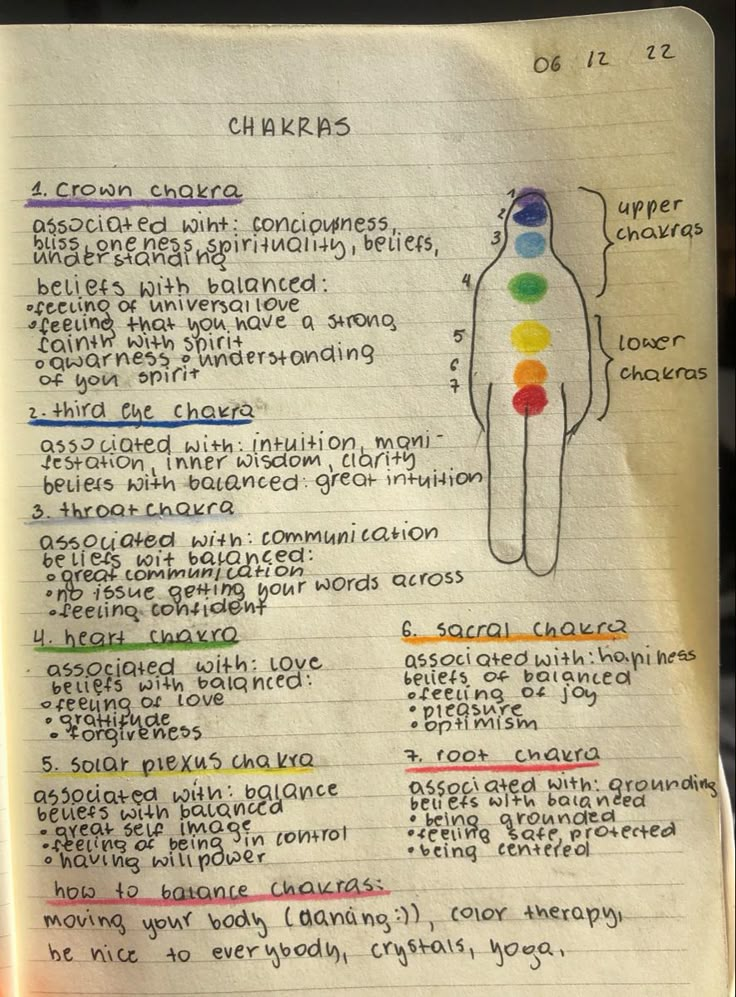 06 12 22
CHAKRAS
1. crown chakra
associated wiht: conciousness,
bliss, oneness, spirituality, beliefs,
understanding
beliefs with balanced:
•feeling of universal love
•feeling that you have a strong
fainth with spirit
•awarness •understanding
of you spirit
2. third eye chakra
associated with: intuition, mani-
festation, inner wisdom, clarity
beliefs with balanced: great intuition
3. throat chakra
associated with: communication
beliefs wit balanced:
•great communication
•no issue getting your words across
•feeling confident
4. heart chakra
associated with: love
beliefs with balanced:
•feeling of love
•grattitude
•forgiveness
5. solar plexus chakra
associated with: balance
beliefs with balanced
•great self image
•feeling of being in control
•having willpower
1
2
3
4
5
6
7
upper
chakras
lower
chakras
6. sacral chakra
associated with: hapiness
beliefs of balanced
•feeling of joy
•pleasure
•optimism
7. root chakra
associated with: grounding
beliefs with balanced
•being grounded
•feeling safe, protected
•being centered
how to balance chakras:
moving your body (dancing:)), color therapy,
be nice to everybody, crystals, yoga,